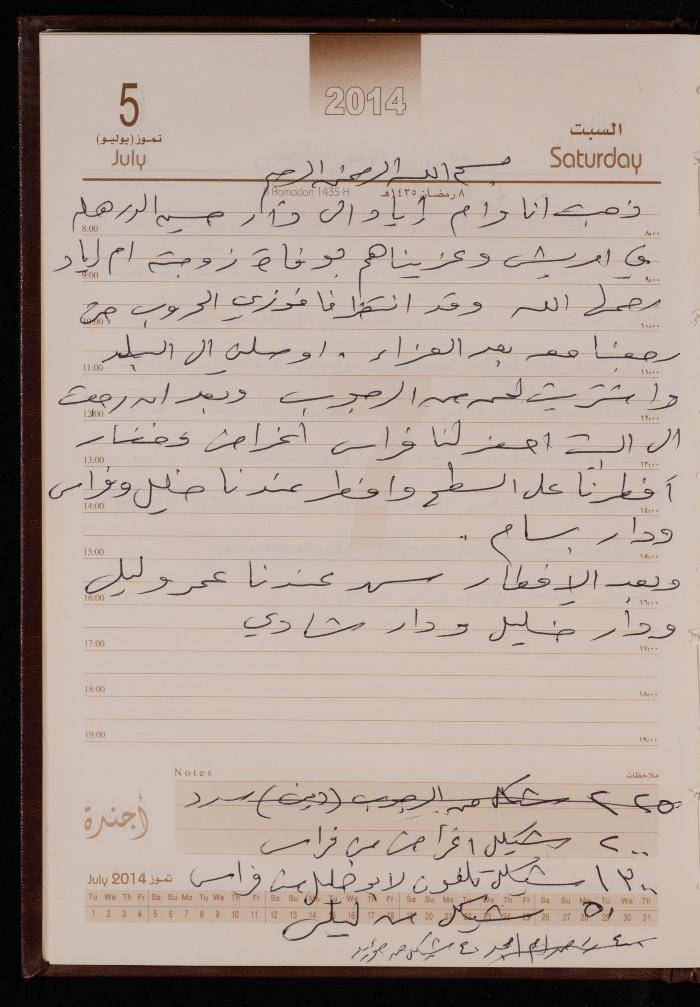 2014
5
تموز (يوليو)
July
السبت
Saturday
بسم الله الرحمن الرحيم
8 Ramadan 1435 H ٨ رمضان ١٤٣٥هـ
ذهبت انا وام إياد الى دار حسين
8:00 ٨,٠٠
في امريش وعزيناهم بوفاة زوجته ام اياد
9:00 ٩,٠٠
رحمها الله وقد انتظرنا فوزي الحروب حتى
10:00 ١٠,٠٠
رجعنا معه بعد العزاء . اوصلني الى البلد
11:00 ١١,٠٠
واشتريت لحمه من الرجوب وبعد ان رجعت
12:00 ١٢,٠٠
الى البيت احضر لنا فراس اغراض وخضار
13:00 ١٣,٠٠
أفطرنا على السطح وافطر عندنا خليل وفراس
14:00 ١٤,٠٠
ودار بسام .
15:00 ١٥,٠٠
وبعد الإفطار سهر عندنا عمر وليلى
16:00 ١٦,٠٠
ودار خليل ودار شادي
17:00 ١٧,٠٠
18:00 ١٨,٠٠
19:00 ١٩,٠٠
Notes ملاحظات
٢٢٥ شيكل من الرجوب (دين) سدد
أجندة
٢٠٠ شيكل اغراض من فراس
١٣٠٠ شيكل تلفون لابو خليل من فراس
July 2014 تموز
Tu We Th Fr Sa Su Mo Tu We Th Fr Sa Su Mo Tu We Th Fr Sa Su Mo Tu We Th Fr Sa Su Mo Tu We Th
1 2 3 4 5 6 7 8 9 10 11 12 13 14 15 16 17 18 19 20 21 22 23 24 25 26 27 28 29 30 31
٥٠ شيكل من ليلى